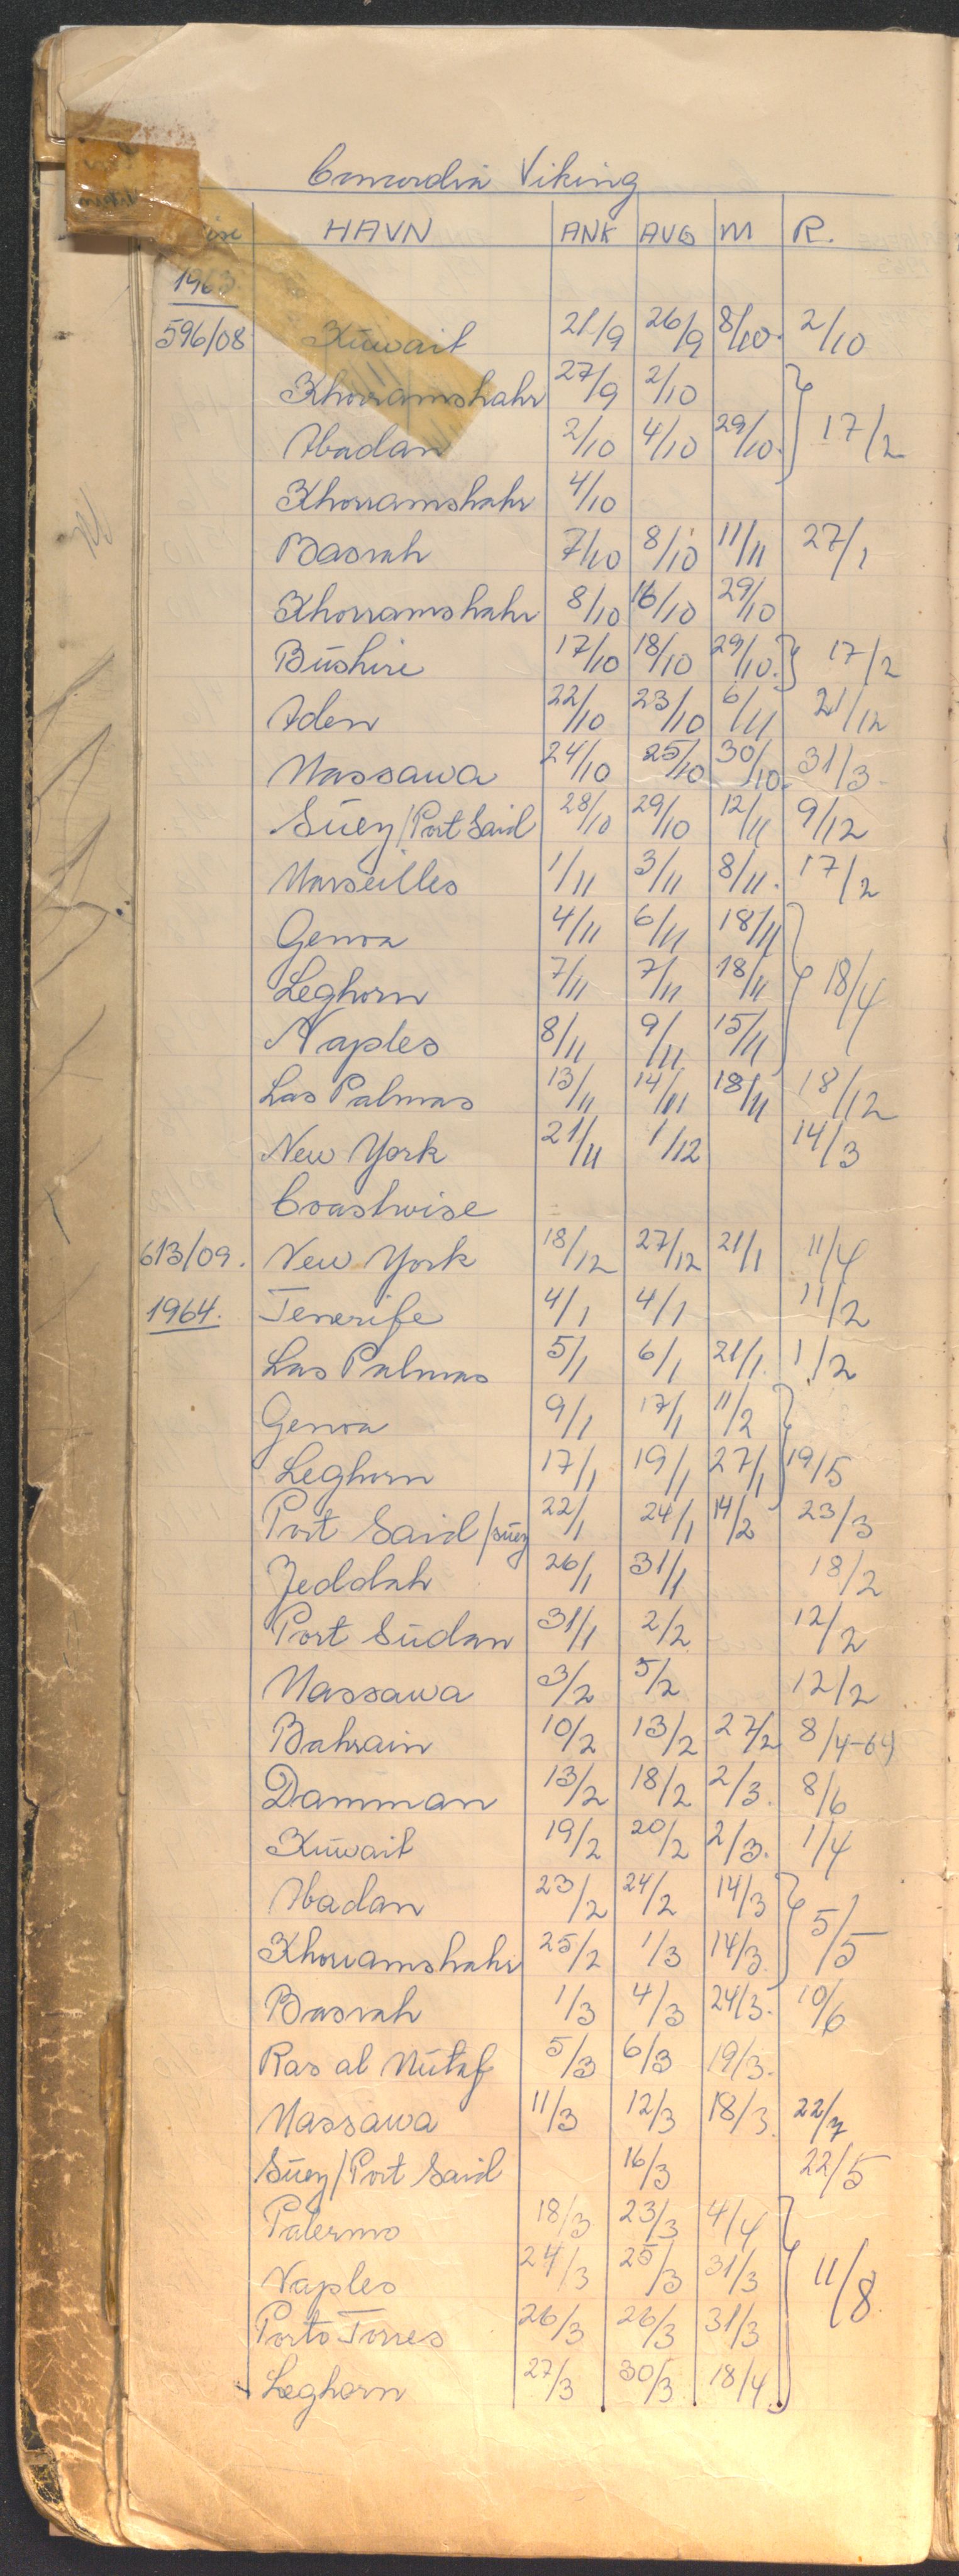 Concordia Viking
HAVN ANK AVG M R.
1963
596/08 Kūwait 21/9 26/9 8/10. 2/10
Khorramshahr 27/9 2/10
Abadan 2/10 4/10 29/10. 17/2
Khorramshahr 4/10
Basrah 7/10 8/10 11/11 27/1
Khorramshahr 8/10 16/10 29/10
Būshire 17/10 18/10 29/10. 17/2
Aden 22/10 23/10 6/11 21/12
Massawa 24/10 25/10 30/10. 31/3
Sūez/Port Said 28/10 29/10 12/11 9/12
Marseilles 1/11 3/11 8/11. 17/2
Genoa 4/11 6/11 18/11
Leghorn 7/11 7/11 18/11 18/4
Naples 8/11 9/11 15/11
Las Palmas 13/11 14/11 18/11 18/12
New York 21/11 1/12 14/3
Coastwise
613/09. New York 18/12 27/12 21/1 11/4
1964. Tenerife 4/1 4/1 11/2
Las Palmas 5/1 6/1 21/1. 1/2
Genoa 9/1 17/1 11/2
Leghorn 17/1 19/1 27/1 19/5
Port Said/sūez 22/1 24/1 14/2 23/3
Jeddah 26/1 31/1 18/2
Port Sūdan 31/1 2/2 12/2
Massawa 3/2 5/2 12/2
Bahrain 10/2 13/2 27/2 8/4-64
Damman 13/2 18/2 2/3. 8/6
Kūwait 19/2 20/2 2/3. 1/4
Abadan 23/2 24/2 14/3
Khorramshahr 25/2 1/3 14/3. 5/5
Basrah 1/3 4/3 24/3. 10/6
Ras al Mūtaf 5/3 6/3 19/3.
Massawa 11/3 12/3 18/3. 22/7
Sūez/Port Said 16/3 22/5
Palermo 18/3 23/3 4/4
Naples 24/3 25/3 31/3 11/8.
Porto Torres 26/3 26/3 31/3
Leghorn 27/3 30/3 18/4.